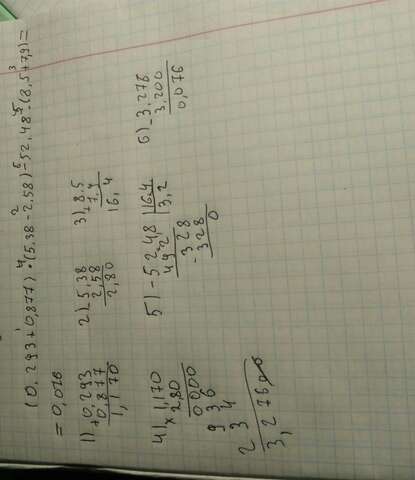 (0,293+0,877)·(5,38-2,58)-52,48:(8,5+7,9)=
= 0,076
1) +0,293
0,877
1,170
2) -5,38
2,58
2,80
3) +8,5
7,9
16,4
4) ×1,170
2,80
0000
936
234
3,27600
5) -52,48 |16,4
49 2 3,2
-328
328
0
6) -3,276
3,200
0,076